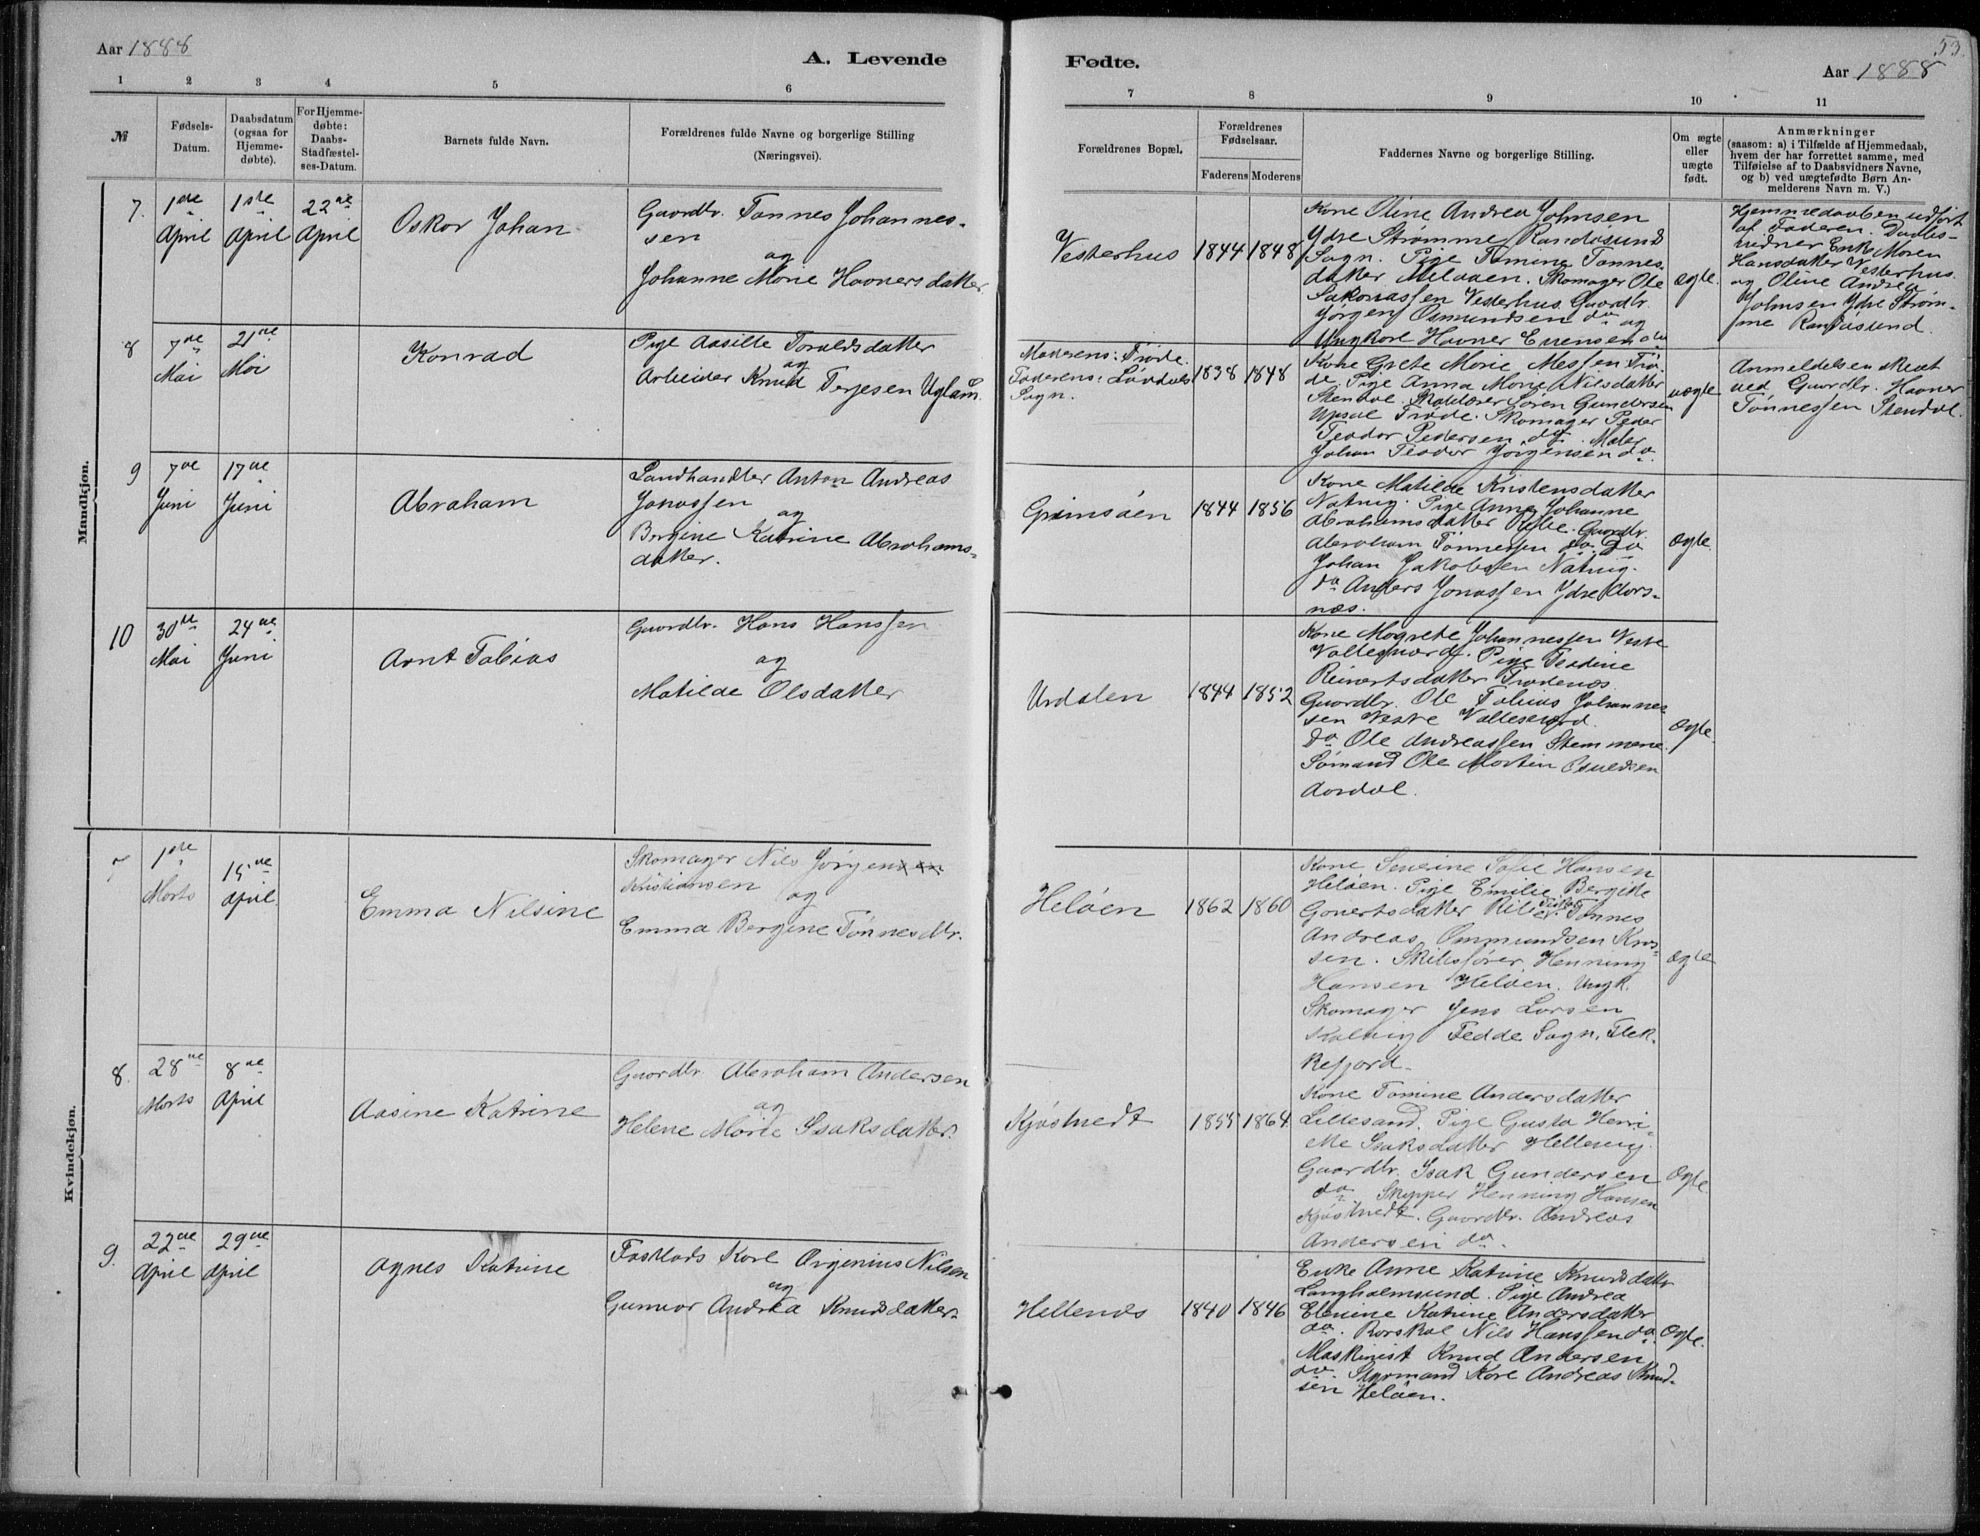 Aar 1888
A. Levende
Fødte.
53.
Aar 1888
1 2 3 4 5 6 7 8 9 10 11
№
Fødsels-
Datum.
Daabsdatum
(ogsaa for
Hjemme-
døbte).
For Hjemme-
døbte:
Daabs-
Stadfæstel-
ses-Datum.
Barnets fulde Navn.
Forældrenes fulde Navne og borgerlige Stilling
(Næringsvei).
Forældrenes Bopæl.
Forældrenes
Fødselsaar.
Faderens Moderens
Faddernes Navne og borgerlige Stilling.
Om ægte
eller
uægte
født.
Anmærkninger
(saasom: a) i Tilfælde af Hjemmedaab,
hvem der har forrettet samme, med
Tilføielse af to Daabsvidners Navne,
og b) ved uægtefødte Børn An-
melderens Navn m. V.)
Mandkjøn.
7.
1ste
April
1ste
April
22de
April
Oskar Johan
Gaardbr. Tønnes Johannes-
sen
og
Johanne Marie Haaversdatter.
Vesterhus
1844 1848
Kone Oline Andrea Johnsen
Ydre Strømme Randøsund
Sogn. Pige Tomine Tønnes-
datter. Skomager Ole
Vesterhus. Gaardbr.
Jørgen Osmundsen do og
Ungkarl Haaver Evensen do
ægte.
Hjemmedaaben udført
af Faderen. Daabs-
vidner Enke Maren
Hansdatter Vesterhus
og Oline Andrea
Johnsen Ydre Strøm-
me Randøsund.
8
7de
Mai
21de
Mai
Konrad
Pige Aasille Taraldsdatter
og
Arbeider Knud Terjesen Ugland.
Moderens: Trøde.
Faderens: Landvig
Sogn.
1838 1848
Kone Grete Marie Trø-
de. Pige Anna Marie Nilsdatter
Stendal. Søren Gundersen
Trøde. Skomager Peder
Teodor Pedersen do. Maler
Johan Teodor Jørgensen do.
uægte
Anmeldelsen skeet
ved Gaardbr. Haaver
Tønnessen Stendal.
9
7de
Juni
17de
Juni
Abraham
Landhandler Anton Andreas
Jonassen
og
Bergine Katrine Abrahams-
datter.
Grimsøen
1844 1856
Kone Matilde Kristensdatter
Natvig. Pige Anna Johanne
Abrahamsdatter. Gaardbr.
Abraham Tønnessen do. do
Johan Jakobsen Natvig.
do Anders Jonassen Ydre Dørs-
næs.
Ægte.
10
30te
Mai
24de
Juni
Arnt Tobias
Gaardbr. Hans Hanssen
og
Matilde Olsdatter
Urdalen
1844 1852
Kone Magrete Johannessen Vestre
Vallesværd. Pige Teodine
Reinertsdatter Trødenæs.
Gaardbr. Ole Tobias Johannes-
sen Vestre Vallesværd.
do Ole Andreassen Stemmene.
Sømand Ole Martin Osuldsen
Aardal.
Ægte.
Kvindekjøn.
7
1ste
Marts
15de
April
Emma Nilsine
Skomager Nils Jørgen
Kristiansen
og
Emma Bergine Tønnesdtr.
Heløen
1862 1860
Kone Severine Sofie Hansen
Heløen. Pige Emilie Bergitte
Govertsdatter. Tønnes
Andreas Ommundsen Kros-
sen. Skibsfører Henning
Hansen Heløen. Ungk.
Skomager Jens Larsen
Fedde Sogn, Flek-
kefjord.
Ægte
8.
28de
Marts
8de
April
Aasine Katrine
Gaardbr. Abraham Andersen
og
Helene Marie Isaksdatter.
Kjøstvedt
1855 1864
Kone Tomine Andersdatter
Lillesand. Pige Gusta Henri-
ette Isaksdatter Hellevig.
Gaardbr. Isak Gundersen
do. Skipper Henning Hansen
Kjøstvedt. Gaardbr. Andreas
Andersen do.
Ægte.
9.
22de
April
29de
April
Agnes Katrine
Karl Orgenius Nilsen
og
Gunvor Andrea Knudsdatter.
Hellenæs
1840 1846
Enke Anne Katrine Knudsdatter
Langholmsund. Pige Andrea
Elenine Katrine Andersdatter
do. Nils Hanssen do.
Maskinist Knud Andersen
do. Styrmand Karl Andreas Knud-
sen Heløen.
Ægte.